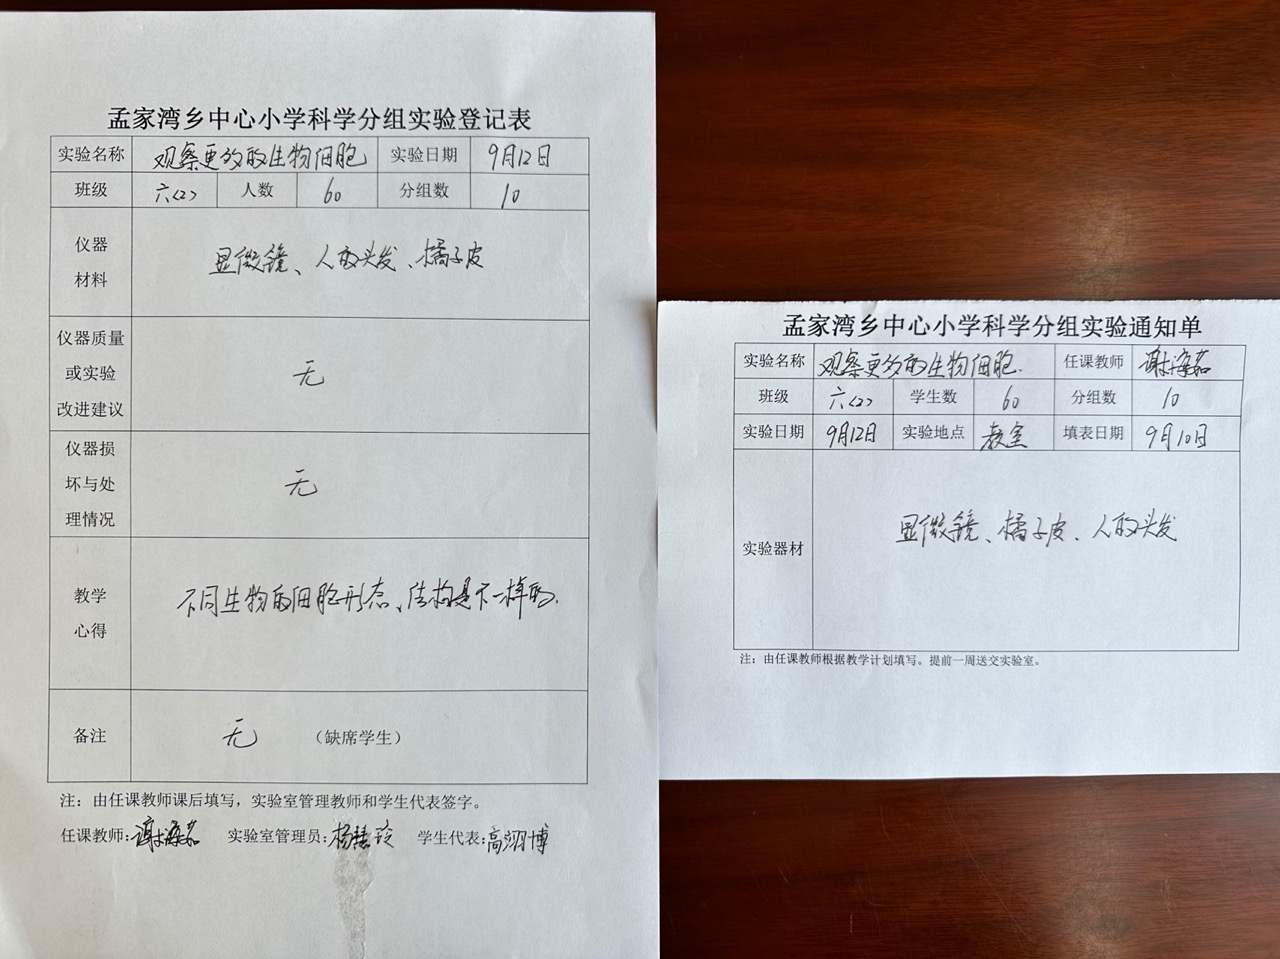 孟家湾乡中心小学科学分组实验登记表
实验名称 观察更多的生物细胞 实验日期 9月12日
班级 六(2) 人数 60 分组数 10
仪器
材料
显微镜、人的头发、橘子皮
仪器质量
或实验
改进建议
无
仪器损
坏与处
理情况
无
教学
心得
不同生物的细胞形态、结构是不一样的.
备注 无 （缺席学生）
注：由任课教师课后填写，实验室管理教师和学生代表签字。
任课教师:谢海茹 实验室管理员:杨慧玲 学生代表:高翊博
孟家湾乡中心小学科学分组实验通知单
实验名称 观察更多的生物细胞. 任课教师 谢海茹
班级 六(2) 学生数 60 分组数 10
实验日期 9月12日 实验地点 教室 填表日期 9月10日
实验器材 显微镜、橘子皮、人的头发
注：由任课教师根据教学计划填写。提前一周送交实验室。